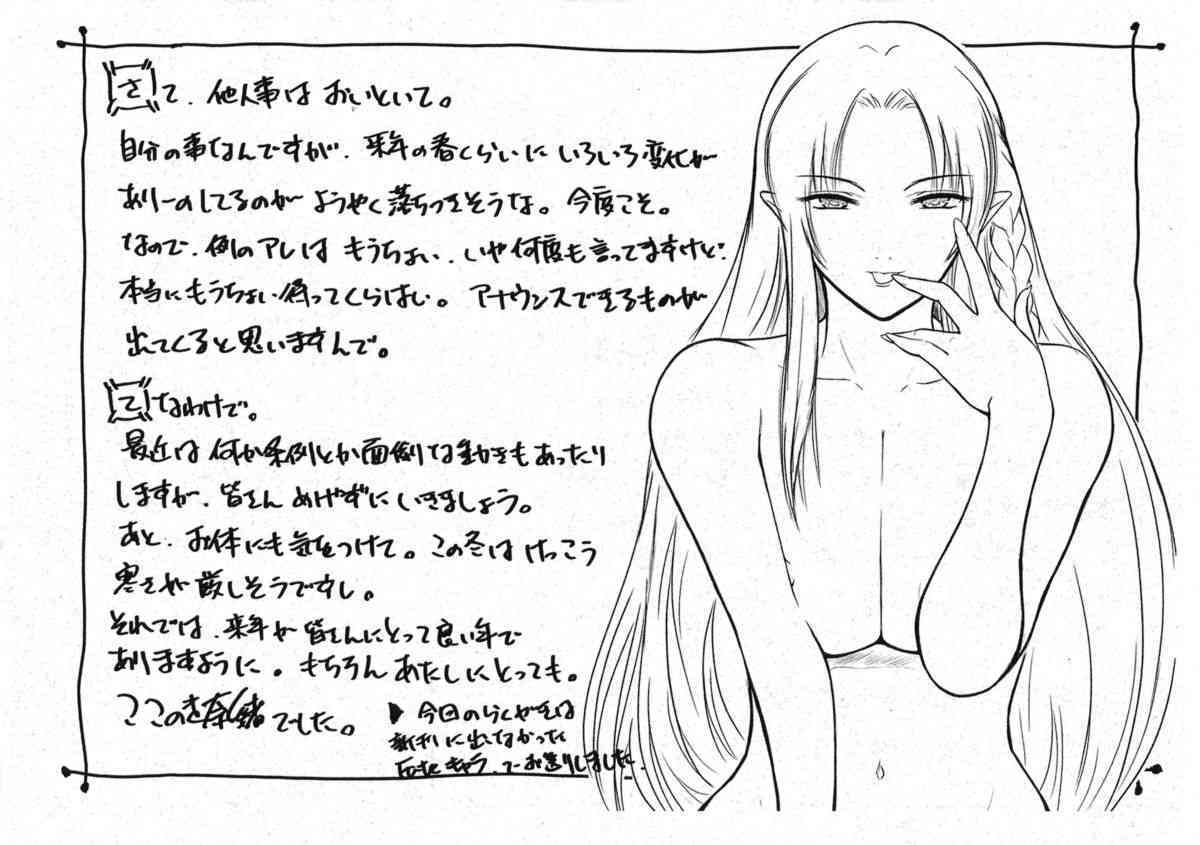 さて、他人事はおいといて。
自分の事なんですが、来年の春くらいにいろいろ変化が
ありーのしてるのがようやく落ちつきそうな。今度こそ。
なので、例のアレはもうちょい、いや何度も言ってますけど
本当にもうちょい待ってくらはい。アナウンスできるものが
出てくると思いますんで。
てなわけで。
最近は何か条例とか面倒な動きもあったり
しますが、皆さんめげずにいきましょう。
あと、お体にも気をつけて。この冬はけっこう
寒さが厳しそうですし。
それでは、来年が皆さんにとって良い年で
ありますように。もちろんあたしにとっても。
ここのき奈緒でした。
▶今回のらくがきは
新刊に出てなかった
キャラでお送りしました。